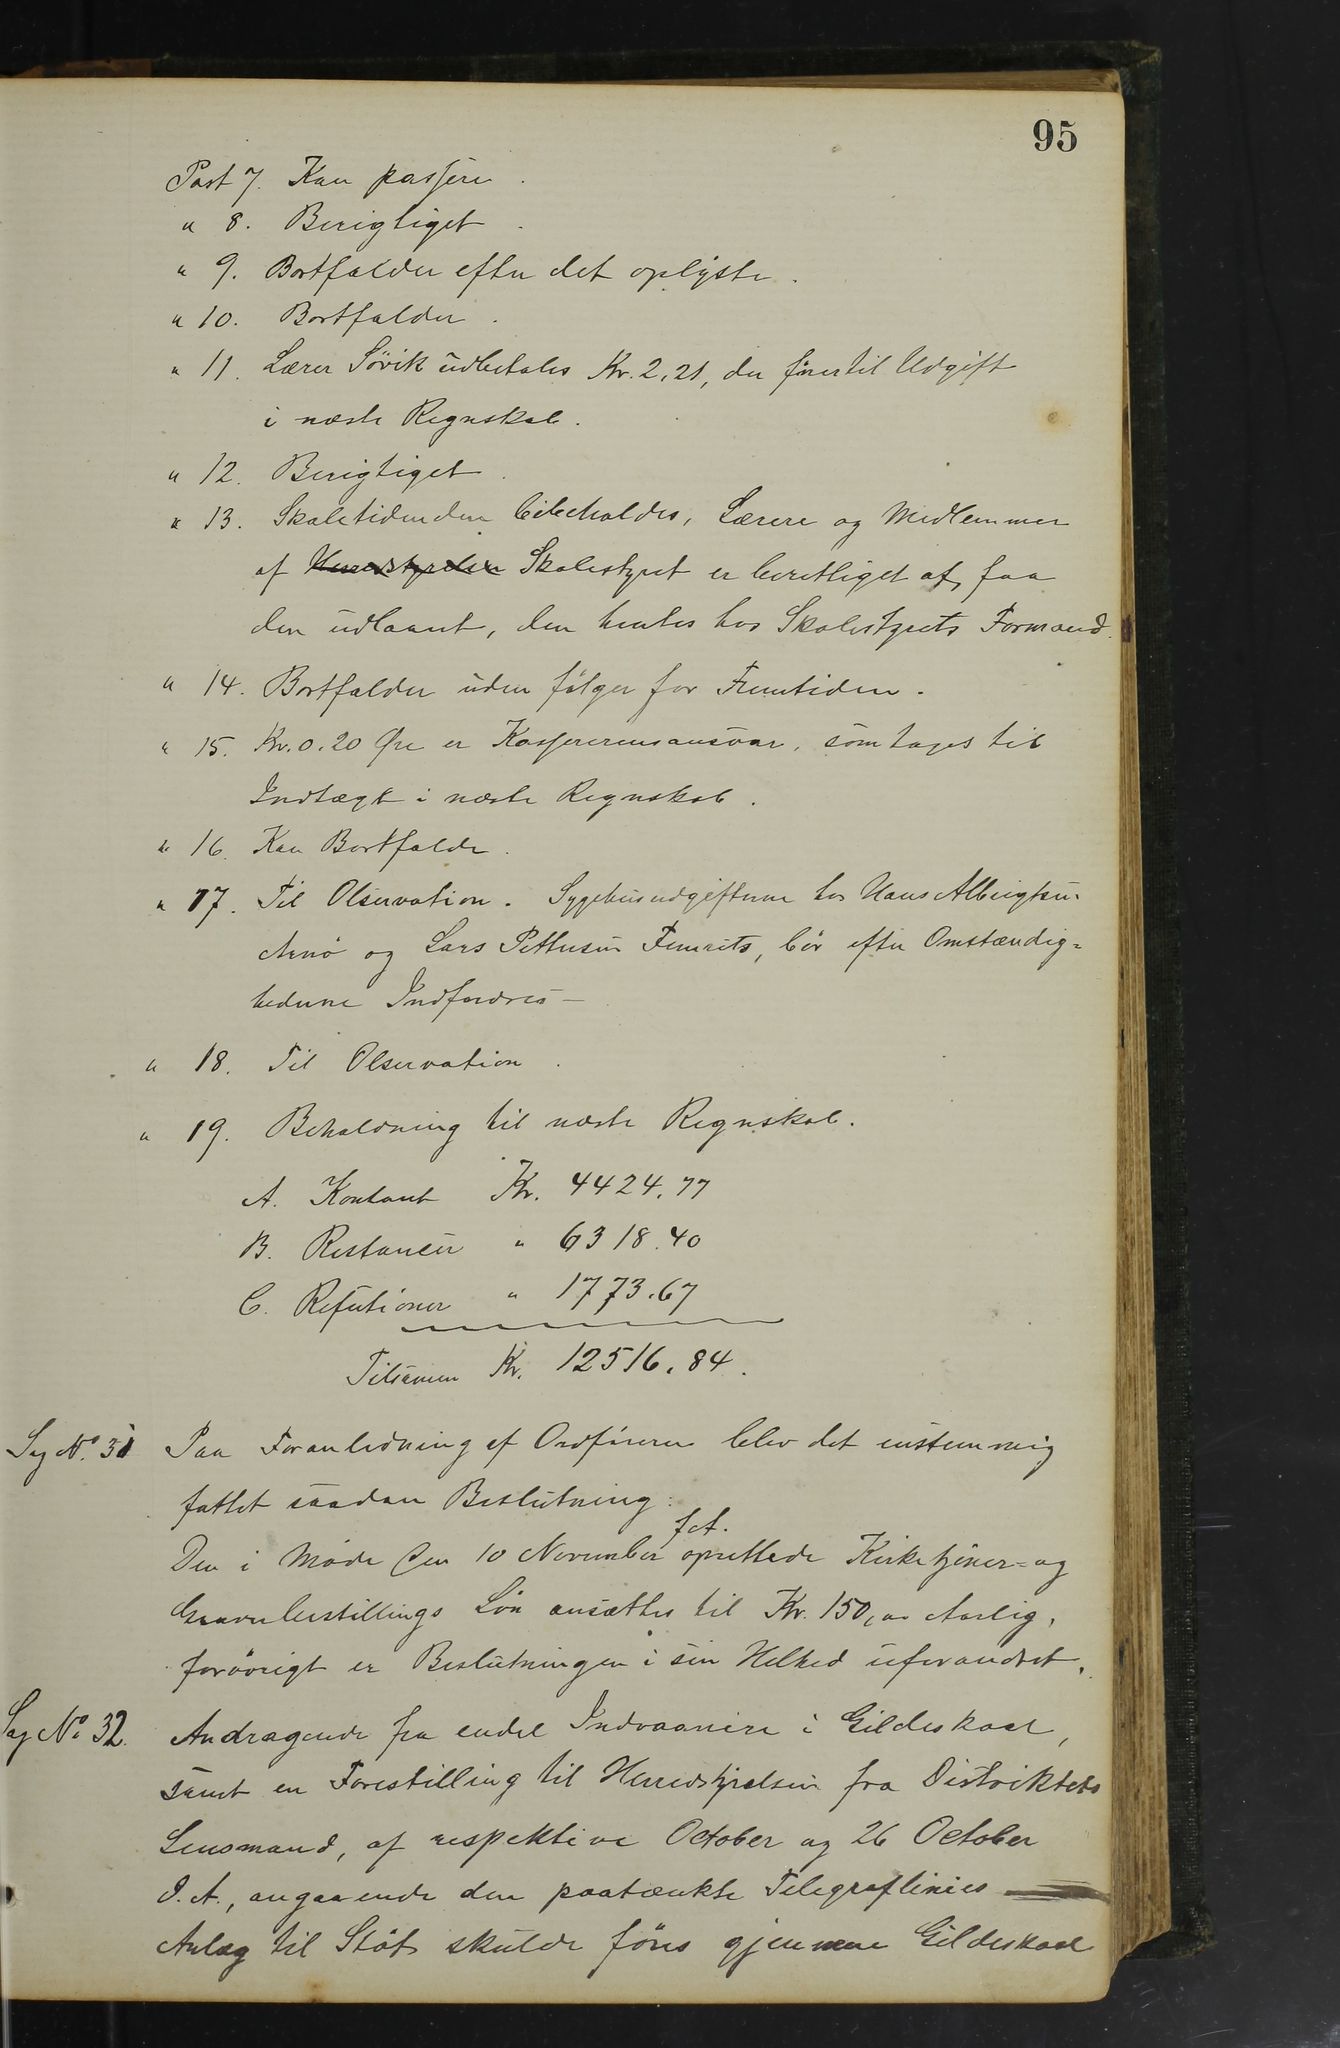 95
Post 7. Kan passere.
" 8. Berigtiget.
" 9. Bortfalder efter det oplyste.
" 10. Bortfalder.
" 11. Lærer Søvik udbetales Kr. 2,21, der föres til Udgift
i næste Regnskab.
" 12. Berigtiget.
" 13. Skoletidenden bibeholdes, Lærere og Medlemmer
af Herredstyrelsen Skolestyret er berettiget at faa
den udlaant, den hentes hos Skolestyrets Formand.
" 14. Bortfalder uden fölger for Fremtiden.
" 15. Kr. 0.20 Øre er Kassererens ansvar, som tages til
Indtægt i næste Regnskab.
" 16. Kan Bortfalde.
" 17. Til Observation. Sygehusudgifterne hos Hans Albrigtsen
Arnö og Lars Pettersen Femris, bör efter Omstændig=
hederne Indfordres —
" 18. Til Observation.
" 19. Beholdning til næste Regnskab.
A. Kontant Kr. 4424.77
B. Restancer " 6318.40
C. Refutioner " 1773.67
Tilsamen Kr. 12516.84.
Sag No. 31 Paa Foranledning af Ordföreren blev det enstemmig
fattet saadan Beslutning:
f. A.
Den i Møde den 10 November oprettede Kirketjener= og
Graverbestillings Lön ansættes til Kr. 150,00 Aarlig,
forövrigt er Beslutningen i sin Helhed uforandret.
Sag No 32. Andragende fra endel Indvaanere i Gildeskaal,
samt en Forestilling til Herredstyrelsen fra Distriktets
Lensmand, af respektive October og 26 October
d. A., angaaende den paatænkte Telegraflinies
Anlæg til Stöt skulde föres gjennem Gildeskaal